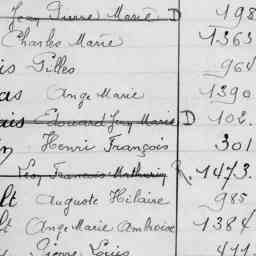 Jean Pierre Marie D 198
Charles Marie 1363
is Gilles 964
as Ange Marie 1390
ais Edouard Jean Marie D 102.
Henri François 301
Léon François Mathurin R. 1473.
lt Auguste Hilaire 985
lt Ange Marie Ambroise 1384
Pierre Louis 411